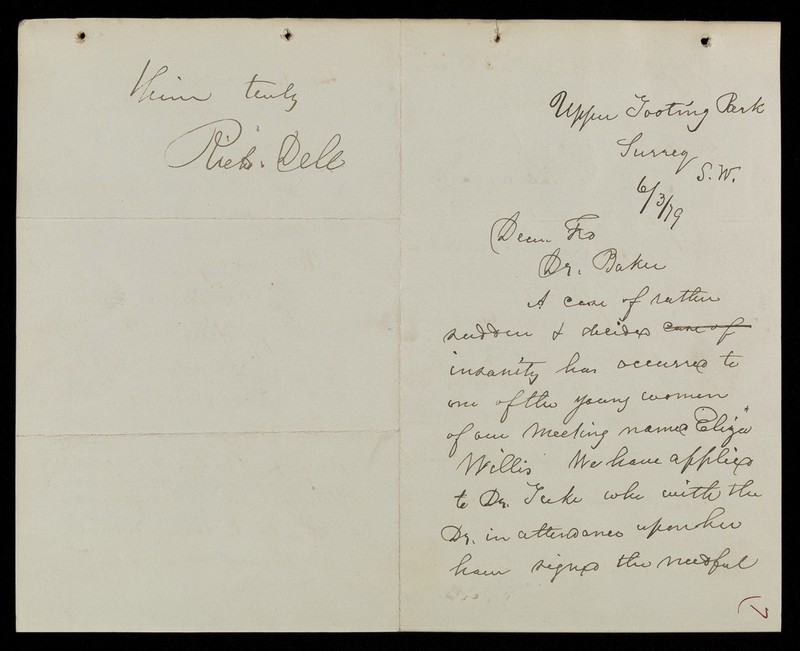 Upper Tooting Park
Surrey
S.W.
6/3/79
Dear Fd
Dr. Baker
A case of rather
sudden & decided case of
insanity has occurred to
one of the young women
of our Meeting named "Eliza
Willis" We have applied
to Dr. Tuke who with the
Dr. in attendance upon her
have signed the needful
Thine truly
Richd. Dell